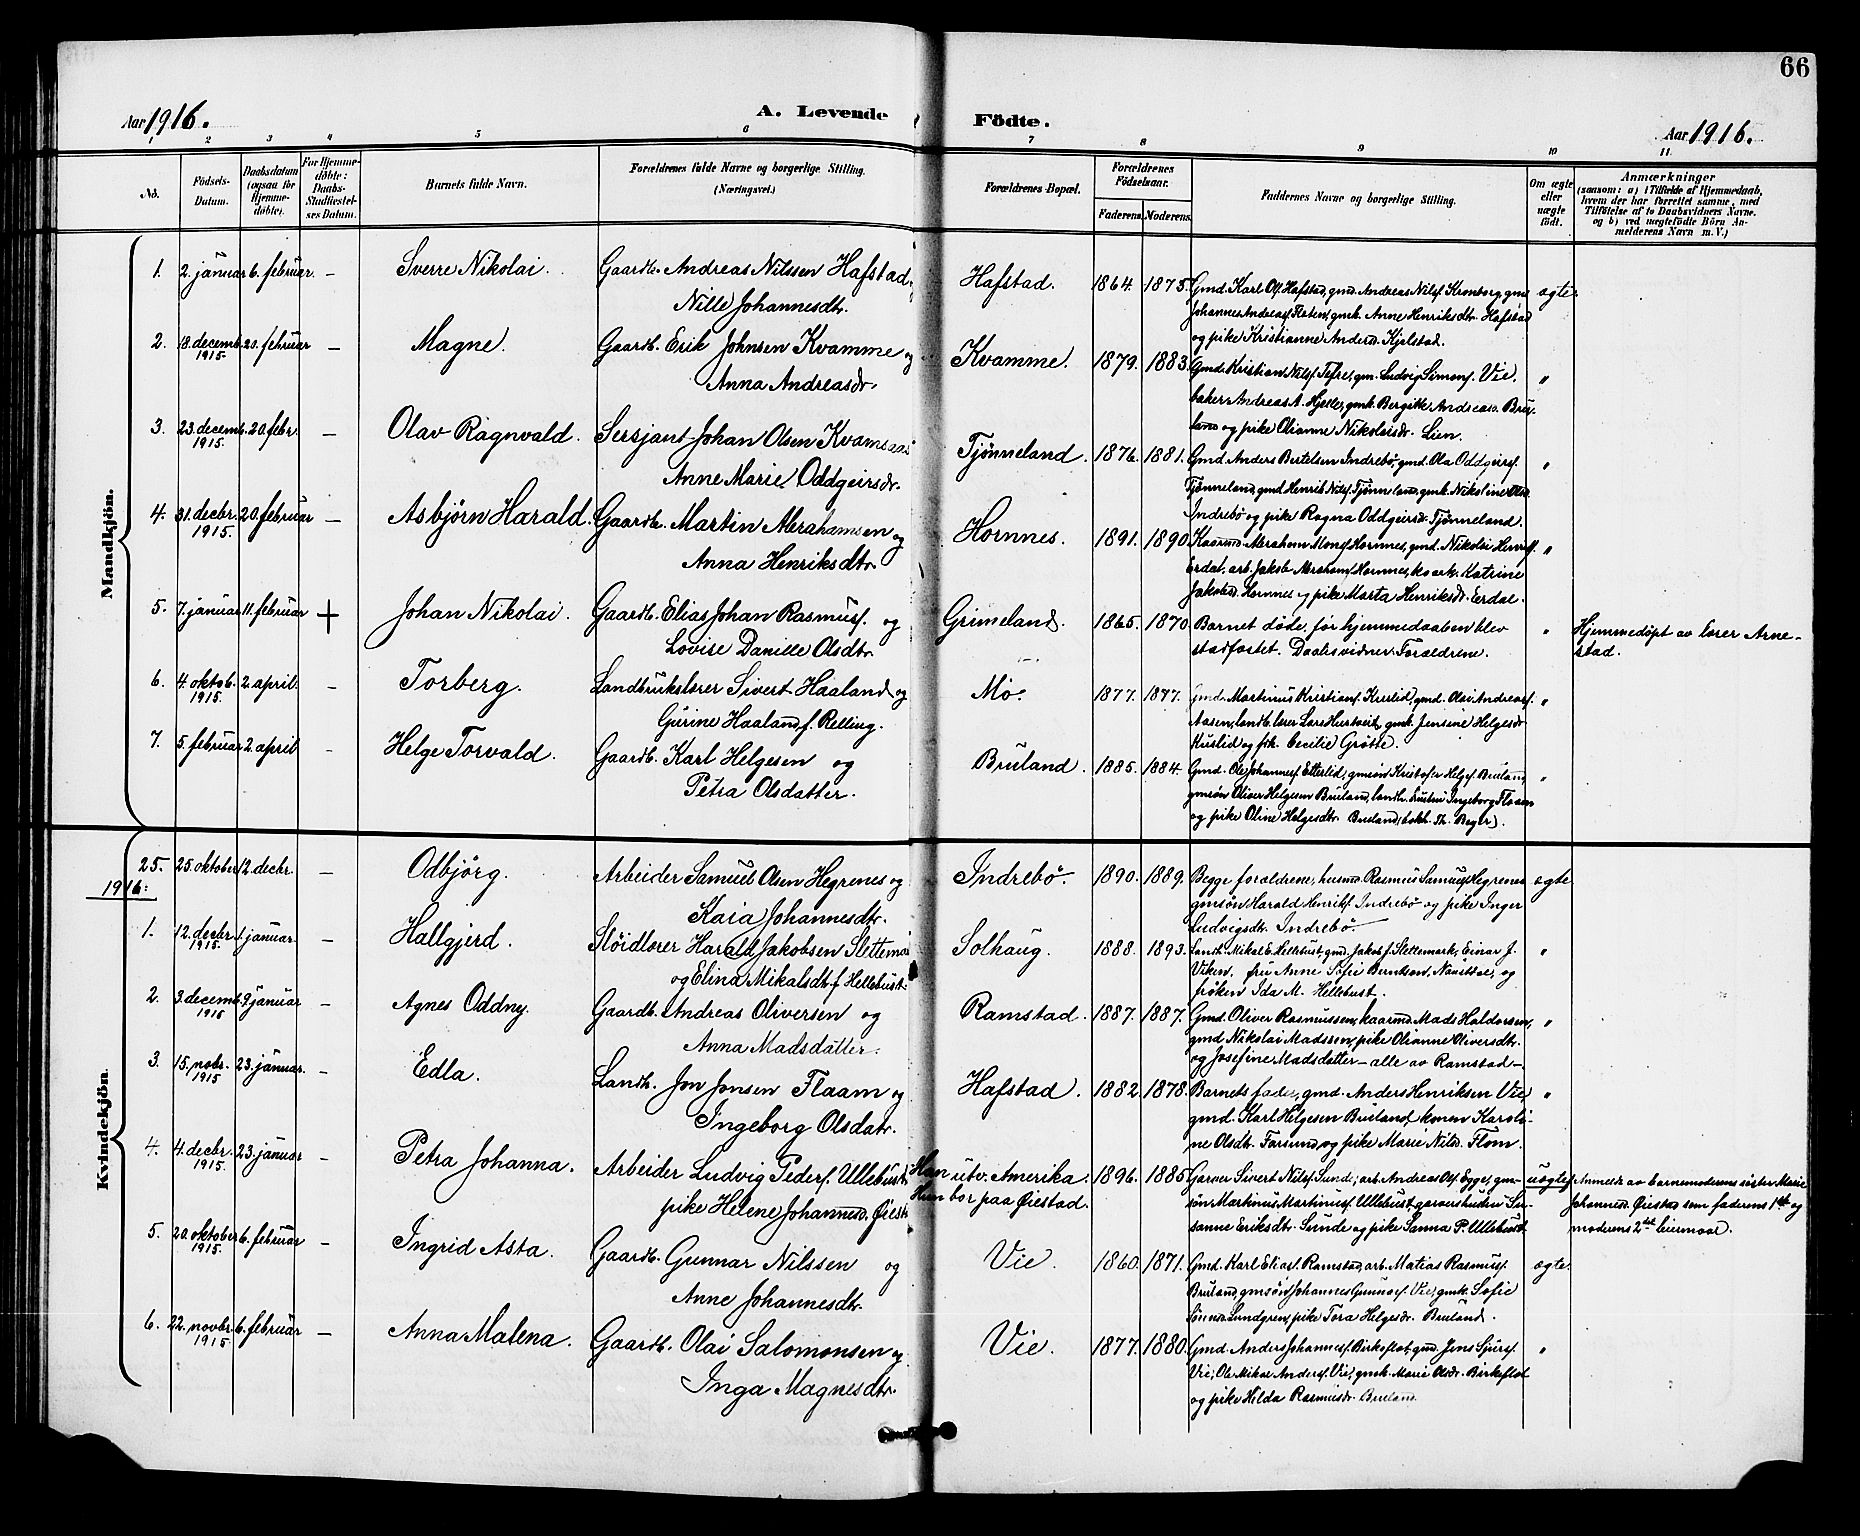 66
Aar 1916. A. Levende Födte. Aar 1916.
1 2 3 4 5 6 7 8 9 10 11
No. Födsels-Datum. Daabsdatum (ogsaa for Hjemme-döbte). For Hjemme-döbte: Daabs-Stadfæstel-ses Datum. Barnets fulde Navn. Forældrenes fulde Navne og borgerlige Stilling. (Næringsvei.) Forældrenes Bopæl. Forældrenes Födselsaar. Faderens. Moderens. Faddernes Navne og borgerlige Stilling. Om ægte eller uægte födt. Anmærkninger (saasom: a) i Tilfælde af Hjemmedaab, hvem der har forrettet samme, med Tilföielse af to Daabsvidners Navne. og b) ved uægtefödte Börn An-melderens Navn m. V.)
Mandkjön.
1. 2. januar 6. februar. – Sverre Nikolai. Gaardb. Andreas Nilssen Hafstad, Hafstad. 1864. 1875. Gmd. Karl Ol. Hafstad, gmd. Andreas Nilsf. Kronborg, gmd ægte.
Nille Johannesdtr. Johannes Andreasf. Flaten, gmk. Anne Henriksdtr. Hafstad
og pike Kristianne Andersd. Kjelstad.
2. 18. decemb. 1915. 20. februar – Magne. Gaardb. Erik Johnsen Kvamme og Kvamme. 1879. 1883. Gmd. Kristian Nilsf. Tefre, gm. Ludvig Simonf. Vie. "
Anna Andreasdr. baker Andreas A. Hjelle, gmk. Bergitte Andreasd. Bru-
land og pike Olianne Nikolaisdr. Lien.
3. 23. decemb. 1915. 20. febr. – Olav Ragnvald. Sersjant Johan Olsen Kvamsaas Tjønneland. 1876. 1881. Gmd. Anders Bertelsen Indrebø, gmd. Ola Oddgeirsf. "
Anne Marie Oddgeirsdr. Tjønneland, gmd. Henrik Nilsf. Tjønneland, gmk. Nikoline Olsd.
Indrebø og pike Ragna Oddgeirsd. Tjønneland.
4. 31. decbr. 1915. 20. februar – Asbjørn Harald. Gaardb. Martin Abrahamsen og Hornnes. 1891. 1890. Kaarmd. Abraham Monsf. Hornnes, gmd. Nikolai Henrikf. "
Anna Henriksdtr. Erdal, arb. Jakob Abrahamf. Hornnes, kaark. Katrine
Jakobsd. Hornnes og pike Marta Henriksd. Erdal.
5. 7. januar 11. februar + Johan Nikolai. Gaardb. Elias Johan Rasmusf. og Grimeland. 1865. 1870. Barnet døde, før hjemmedaaben blev " Hjemmedøpt av lærer Arne-
Lovise Danille Olsdtr. stadfæstet. Daabsvidner: Forældrene. stad.
6. 4. oktob. 1915. 2. april. – Torberg. Landbrukslærer Sivert Haaland og Mo. 1877. 1877. Gmd. Martinus Kristiansf. Kuslid, gmd. Olai Andreasf. "
Gurine Haaland f. Relling. Aasen, landb. lærer Lars Hertveit, gmk. Jensene Helgesdr.
Kuslid og frk. Cecilie Grøtte.
7. 5. februar 2. april – Helge Torvald. Gaardb. Karl Helgesen og Bruland. 1885. 1884. Gmd. Ole Johannesf. Etterlid, gmsøn Kristofer Helgef. Bruland, "
Petra Olsdatter. gmsøn Oliver Helgesen Bruland, landh. Frusen Ingeborg Flaam
og pike Oline Helgesdtr. Bruland, (bokh. Th. Beyer).
Kvindekjön.
25. 25. oktober 12. decbr. – Odbjörg. Arbeider Samuel Olsen Hegrenes og Indrebö. 1890. 1889. Begge forældrene, husmd. Rasmus Samuelf. Hegrenes ægte
1916: Kaia Johannesdtr. gmsøn Harald Henrikf. Indrebø og pike Inger
Ludvigsdtr. Indrebø.
1. 12. decbr. 1915. 1. januar. – Hallgjerd. Sløidlærer Harald Jakobsen Slettemark Solhaug. 1888. 1893. Landh. Mikal E. Hellebust, gmd. Jakob J. Slettemark, Einar J. "
og Elina Mikalsdtr. f. Hellebust. Viken, fru Anne Sofie Berntsen, og
frøken Ida M. Hellebust.
2. 3. decemb. 1915 9. januar – Agnes Oddny. Gaardb. Andreas Oliversen og Ramstad. 1887. 1887. Gmd. Oliver Rasmussen, kaarmd. Mads Haldorsen, "
Anna Madsdatter. gmd Nikolai Madssen, pike Olianne Oliversdtr.
og Josefine Madsdatter – alle av Ramstad –
3. 15. novbr. 1915 23. januar. – Edla. Landh. Jon Jonsen Flaam og Hafstad. 1882. 1878. Barnets fader, gmd. Anders Henriksen Vie "
Ingeborg Olsdatr. gmd. Karl Helgesen Bruland, konen Karoli-
ne Olsdtr. Farsund og pike Marie Nilsd. Flom.
4. 4. decbr. 1915. 23. januar – Petra Johanna. Arbeider Ludvig Pedersf. Ullebust Han utv. Amerika. 1896. 1885. Garver Sivert Nilsf. Sunde, arb. Andreas Olsf. Egge, gm- uægte Anmeldt av barnemoderens søster Marie
pike Helene Johannesd. Øiestad Hun bor paa Øiestad. søn Martinus Martinusf. Ullebust, garverhustru Su- Johannesd. Øiestad som faderens 1ste og
sanne Eriksdtr. Sunde og pike Sanna P. Ullebust. moderens 2det leiermaal.
5. 20. oktober 1915. 6. februar – Ingrid Asta. Gaardb. Gunnar Nilssen og Vie. 1860. 1871. Gmd. Karl Eliasf. Ramstad, arb. Matias Rasmusf. ægte.
Anne Johannesdtr. Bruland, gmsøn Johannes Gunnarsf. Vie, gmk. Sofie
Lundgren, pike Tora Helgesdr. Bruland.
6. 22. novbr. 1915. 6. februar – Anna Malena. Gaardb. Olai Salomonsen og Vie. 1877. 1880. Gmd. Anders Johannesf. Birkeflot, gmd. Jens Sjursf. "
Inga Magnesdtr. Vie, Ole Mikal Andersf. Vie, gmk. Marie Olsdr. Birkeflot
og pike Hilda Rasmusdr. Bruland.